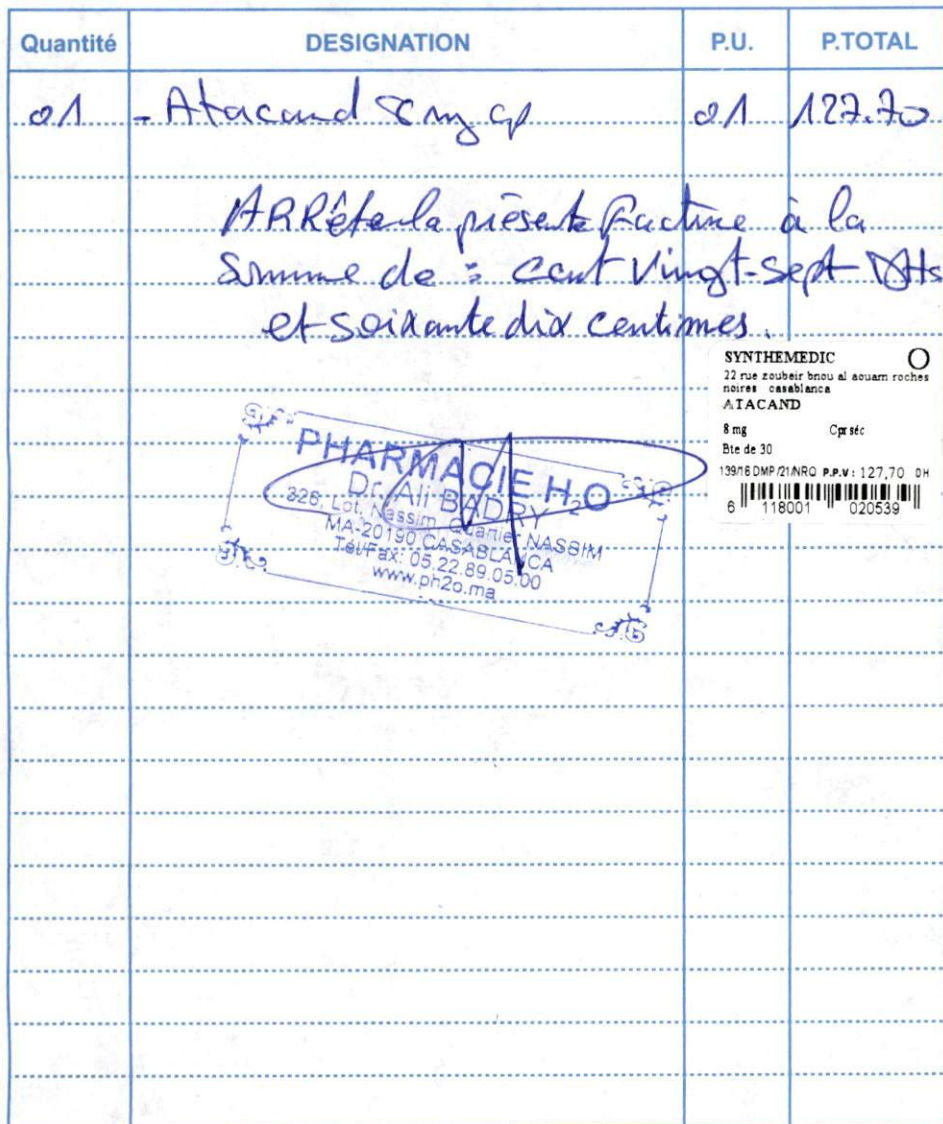 Quantité DESIGNATION P.U. P.TOTAL
01 - Atacand 8mg cp 01 127.70
ARRête la présente Facture à la
Somme de : Cent Vingt-Sept DHs
et Soixante dix centimes.
SYNTHEMEDIC
22 rue zoubeir bnou al aouam roches
noires casablanca
ATACAND
8 mg Cpr séc
Bte de 30
139/16 DMP/21/NRQ P.P.V : 127,70 DH
6 118001 020539
PHARMACIE H2O
Dr. Ali BADRY
326, Lot. Nassim, Quartier NASSIM
MA-20190 CASABLANCA
Tél/Fax: 05.22.89.05.00
www.ph2o.ma